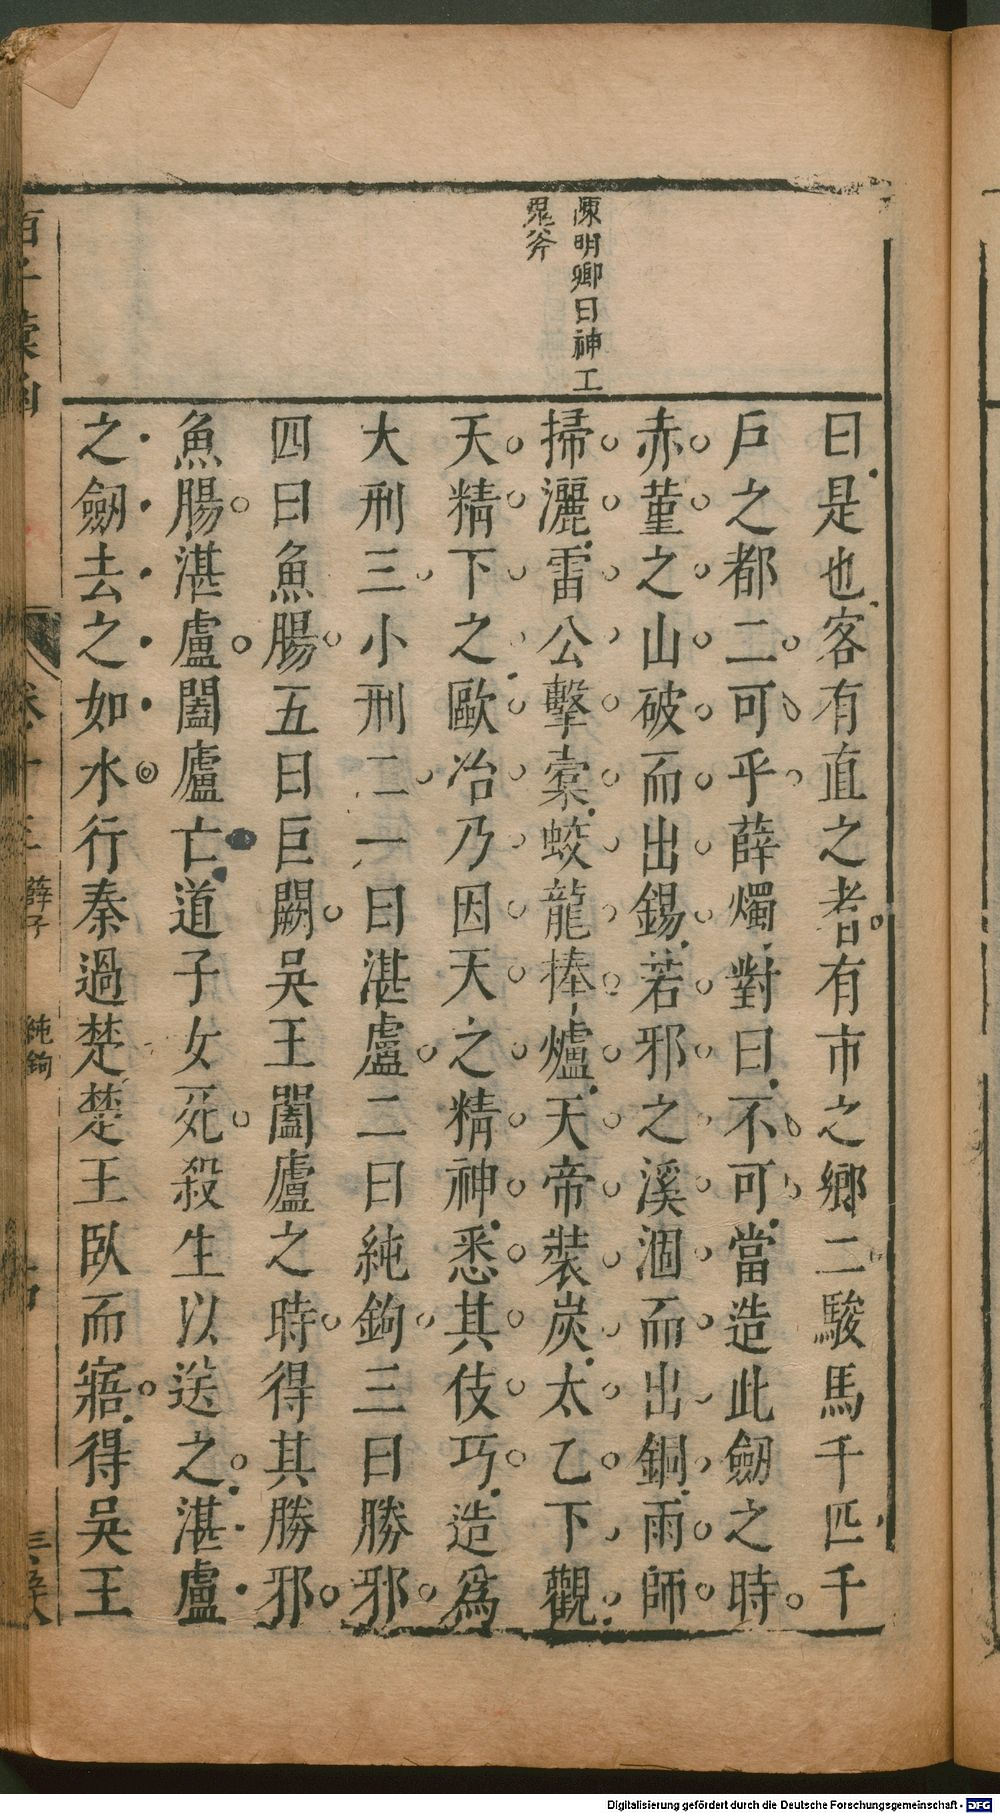 陳明卿曰神工
鬼斧
曰是也客有直之者有市之鄉二駿馬千匹千
戶之都二可乎薛燭對曰不可當造此劒之時
赤菫之山破而出錫若邪之溪涸而出銅雨師
掃灑雷公擊橐蛟龍捧爐天帝裝炭太乙下觀
天精下之歐冶乃因天之精神悉其伎巧造爲
大刑三小刑二一曰湛盧二曰純鉤三曰勝邪
四曰魚腸五曰巨闕吳王闔廬之時得其勝邪
魚腸湛盧闔廬亡道子女死殺生以送之湛盧
之劒去之如水行秦過楚楚王臥而寤得吳王
薛子
純鉤
Digitalisierung gefördert durch die Deutsche Forschungsgemeinschaft - DFG